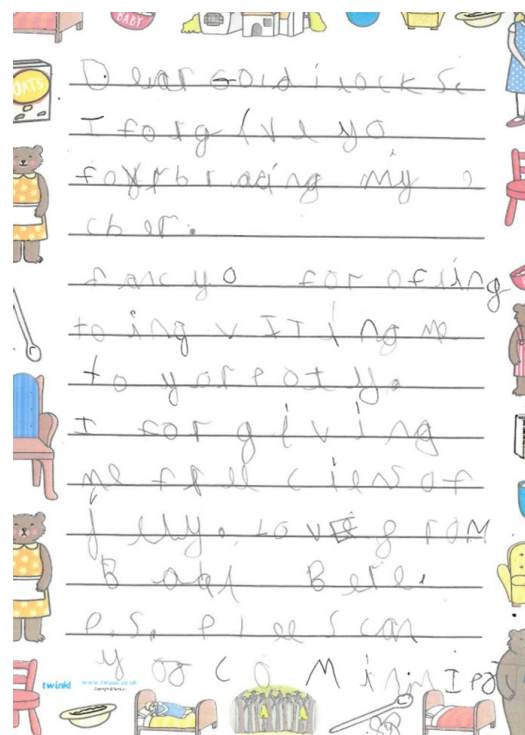 OATS
BABY
Dear Goldilocks
I forgive yo
for braeing my
cher.
fanc yo for ofring
to ingviting me
to yor poty.
I forgiving
me free ciens of
jelly. Love from
Baby Bere.
P.S. Plees can
yoo co
twinkl www.twinkl.co.uk